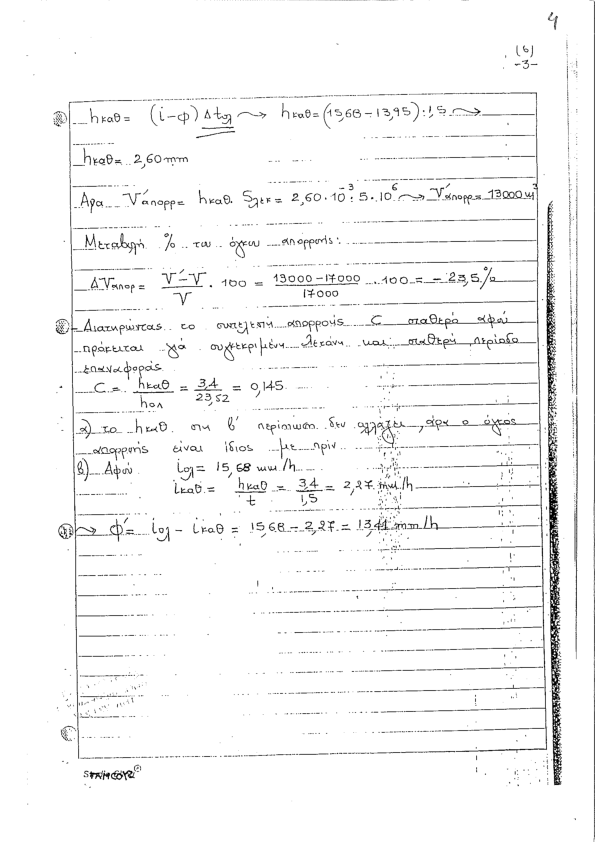 4
(6)
-3-
hκαθ = (i-φ) Δtολ ⤳ hκαθ = (15,68 - 13,95) · 1,5 ⤳
hκαθ = 2,60 mm
Άρα V'απορρ = hκαθ · Sλεκ = 2,60 · 10⁻³ · 5 · 10⁶ ⤳ V'απορρ = 13000 m³
Μεταβολή % του όγκου απορροής:
ΔVαπορ = (V'-V)/V · 100 = (13000-17000)/17000 · 100 = -23,5%
- Διατηρώντας το συντελεστή απορροής C σταθερό αφού
πρόκειται για συγκεκριμένη λεκάνη και σταθερή περίοδο
επαναφοράς
C = hκαθ/hολ = 3,4/23,52 = 0,145
α) το hκαθ στη β' περίπτωση δεν αλλάζει, άρα ο όγκος
απορροής είναι ίδιος με πριν
β) Αφού iολ = 15,68 mm/h
iκαθ = hκαθ/t = 3,4/1,5 = 2,27 mm/h
⤳ φ' = iολ - iκαθ = 15,68 - 2,27 = 13,41 mm/h